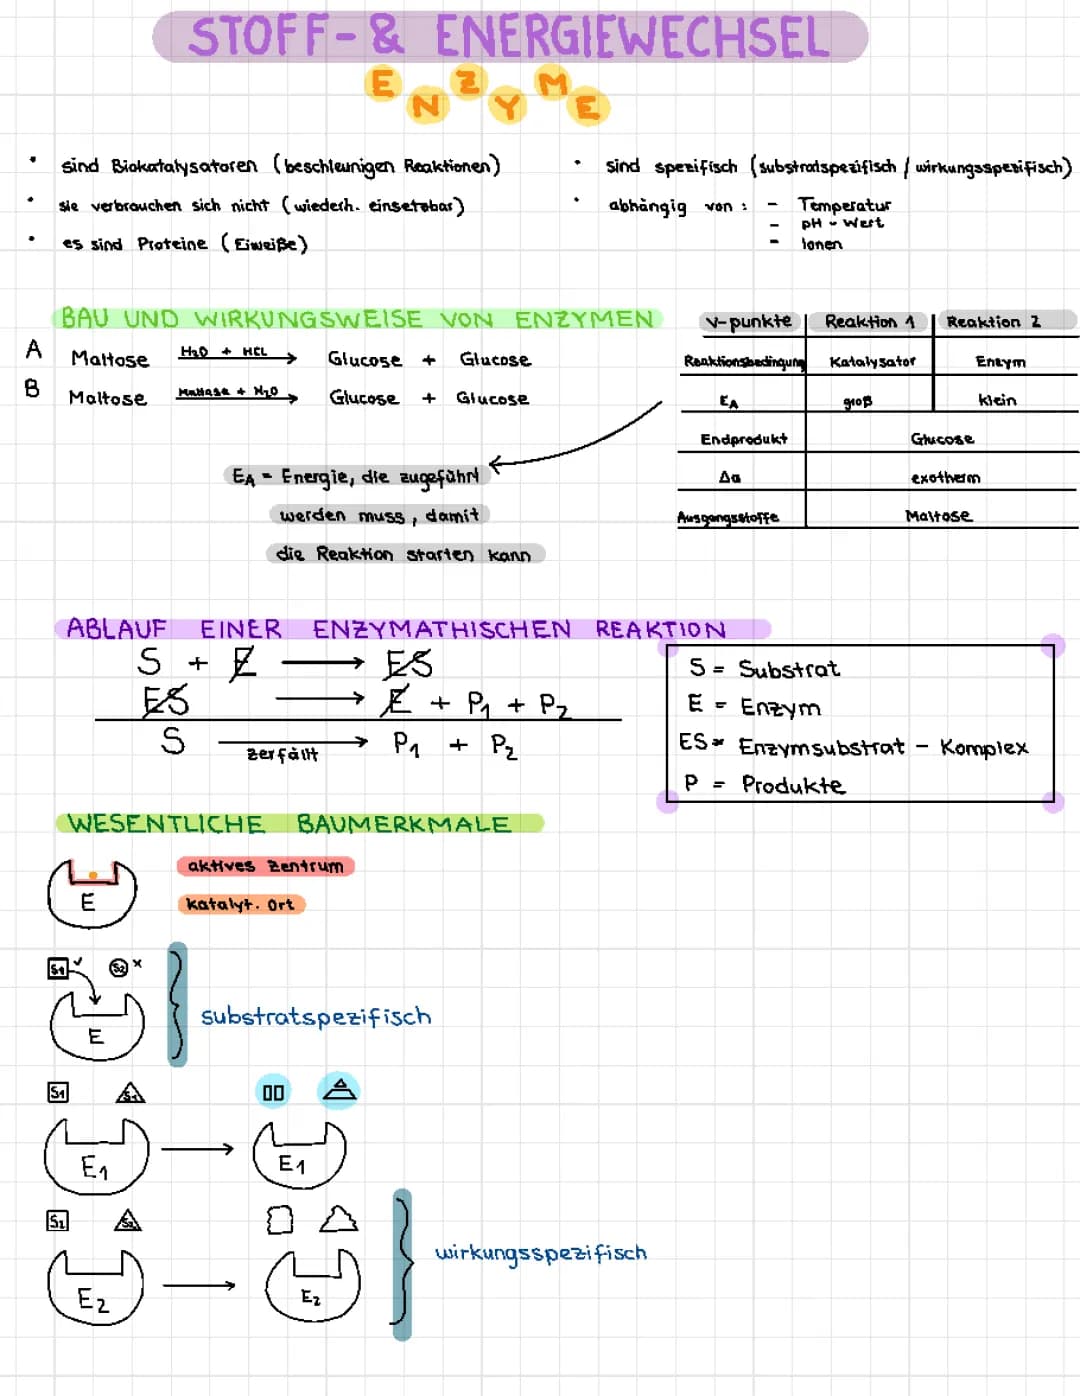 STOFF- & ENERGIEWECHSEL
ENZYME
• sind Biokatalysatoren (beschleunigen Reaktionen)
• sie verbrauchen sich nicht (wiederh. einsetzbar)
• es sind Proteine (Eiweiße)
• sind spezifisch (substratspezifisch / wirkungsspezifisch)
• abhängig von: - Temperatur
- pH - Wert
- Ionen
BAU UND WIRKUNGSWEISE VON ENZYMEN
A Maltose H2O + HCL → Glucose + Glucose
B Maltose Maltase + H2O → Glucose + Glucose
EA = Energie, die zugeführt
werden muss, damit
die Reaktion starten kann
V-punkte Reaktion 1 Reaktion 2
Reaktionsbedingung Katalysator Enzym
EA groß klein
Endprodukt Glucose
Δa exotherm
Ausgangsstoffe Maltose
ABLAUF EINER ENZYMATHISCHEN REAKTION
S + E → ES
ES → E + P1 + P2
S zerfällt → P1 + P2
S = Substrat
E = Enzym
ES = Enzymsubstrat - Komplex
P = Produkte
WESENTLICHE BAUMERKMALE
E
aktives Zentrum
katalyt. Ort
S1 ✓ S2 x
E
substratspezifisch
S1 S1
E1 → E1
S2 S2
E2 → E2
wirkungsspezifisch